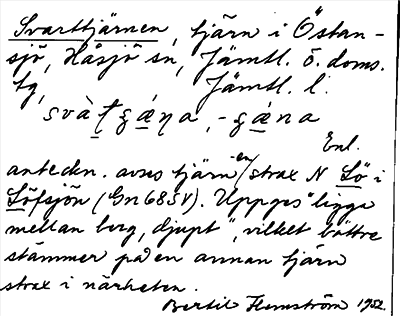 Svarttjärnen, tjärn i Östan-
sjö, Håsjö sn, Jämtl. ö. doms.
tg, Jämtl. l.
svàt̲ʂǽṇa, -gǽna
Enl.
anteckn. avses tjärnen strax N Lö i
Löfsjön (Gn 68 SV). Uppges "ligga
mellan berg, djupt", vilket bättre
stämmer på en annan tjärn
strax i närheten.
Bertil Flemström 1952.